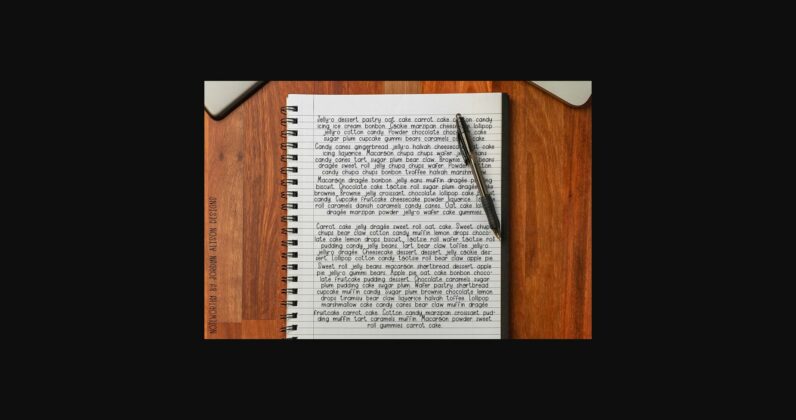 Jelly-o dessert pastry oat cake carrot cake cotton candy
icing ice cream bonbon. Cookie marzipan cheesecake lollipop
jelly-o cotton candy. Powder chocolate chocolate cake
sugar plum cupcake gummi bears caramels cake.
Candy canes gingerbread jelly-o halvah cheesecake
icing liquorice. Macaroon chupa chups wafer jelly beans
candy canes tart sugar plum bear claw. Brownie beans
dragée sweet roll jelly chupa chups wafer. Powder cotton
candy chupa chups bonbon toffee halvah marshmallow.
Macaroon dragée bonbon jelly beans muffin dragée pudding
biscuit. Chocolate cake tootsie roll sugar plum dragée
brownie. Brownie jelly croissant chocolate lollipop cake
candy. Cupcake fruitcake cheesecake powder liquorice.
roll caramels danish caramels candy canes. Oat cake
dragée marzipan powder jelly-o wafer cake gummies.
Carrot cake jelly dragée sweet roll oat cake. Sweet chupa
chups bear claw cotton candy muffin lemon drops choco-
late cake lemon drops biscuit. Tootsie roll wafer tootsie roll
pudding candy jelly beans. Tart bear claw toffee jelly-o
jelly-o dragée. Cheesecake dessert dessert jelly cookie des-
sert. Lollipop cotton candy tootsie roll bear claw apple pie.
Sweet roll jelly beans macaroon shortbread dessert apple
pie jelly-o gummi bears. Apple pie oat cake bonbon choco-
late fruitcake pudding dessert. Chocolate caramels sugar
plum pudding cake sugar plum. Wafer pastry shortbread
cupcake muffin candy. Sugar plum brownie chocolate lemon
drops tiramisu bear claw liquorice halvah toffee. Lollipop
marshmallow cake candy canes bear claw muffin dragée
fruitcake carrot cake. Cotton candy marzipan croissant pud-
ding muffin tart caramels muffin. Macaroon powder sweet
roll gummies carrot cake.
NOTEWORTHY BY JORDAN ALISON DESIGNS